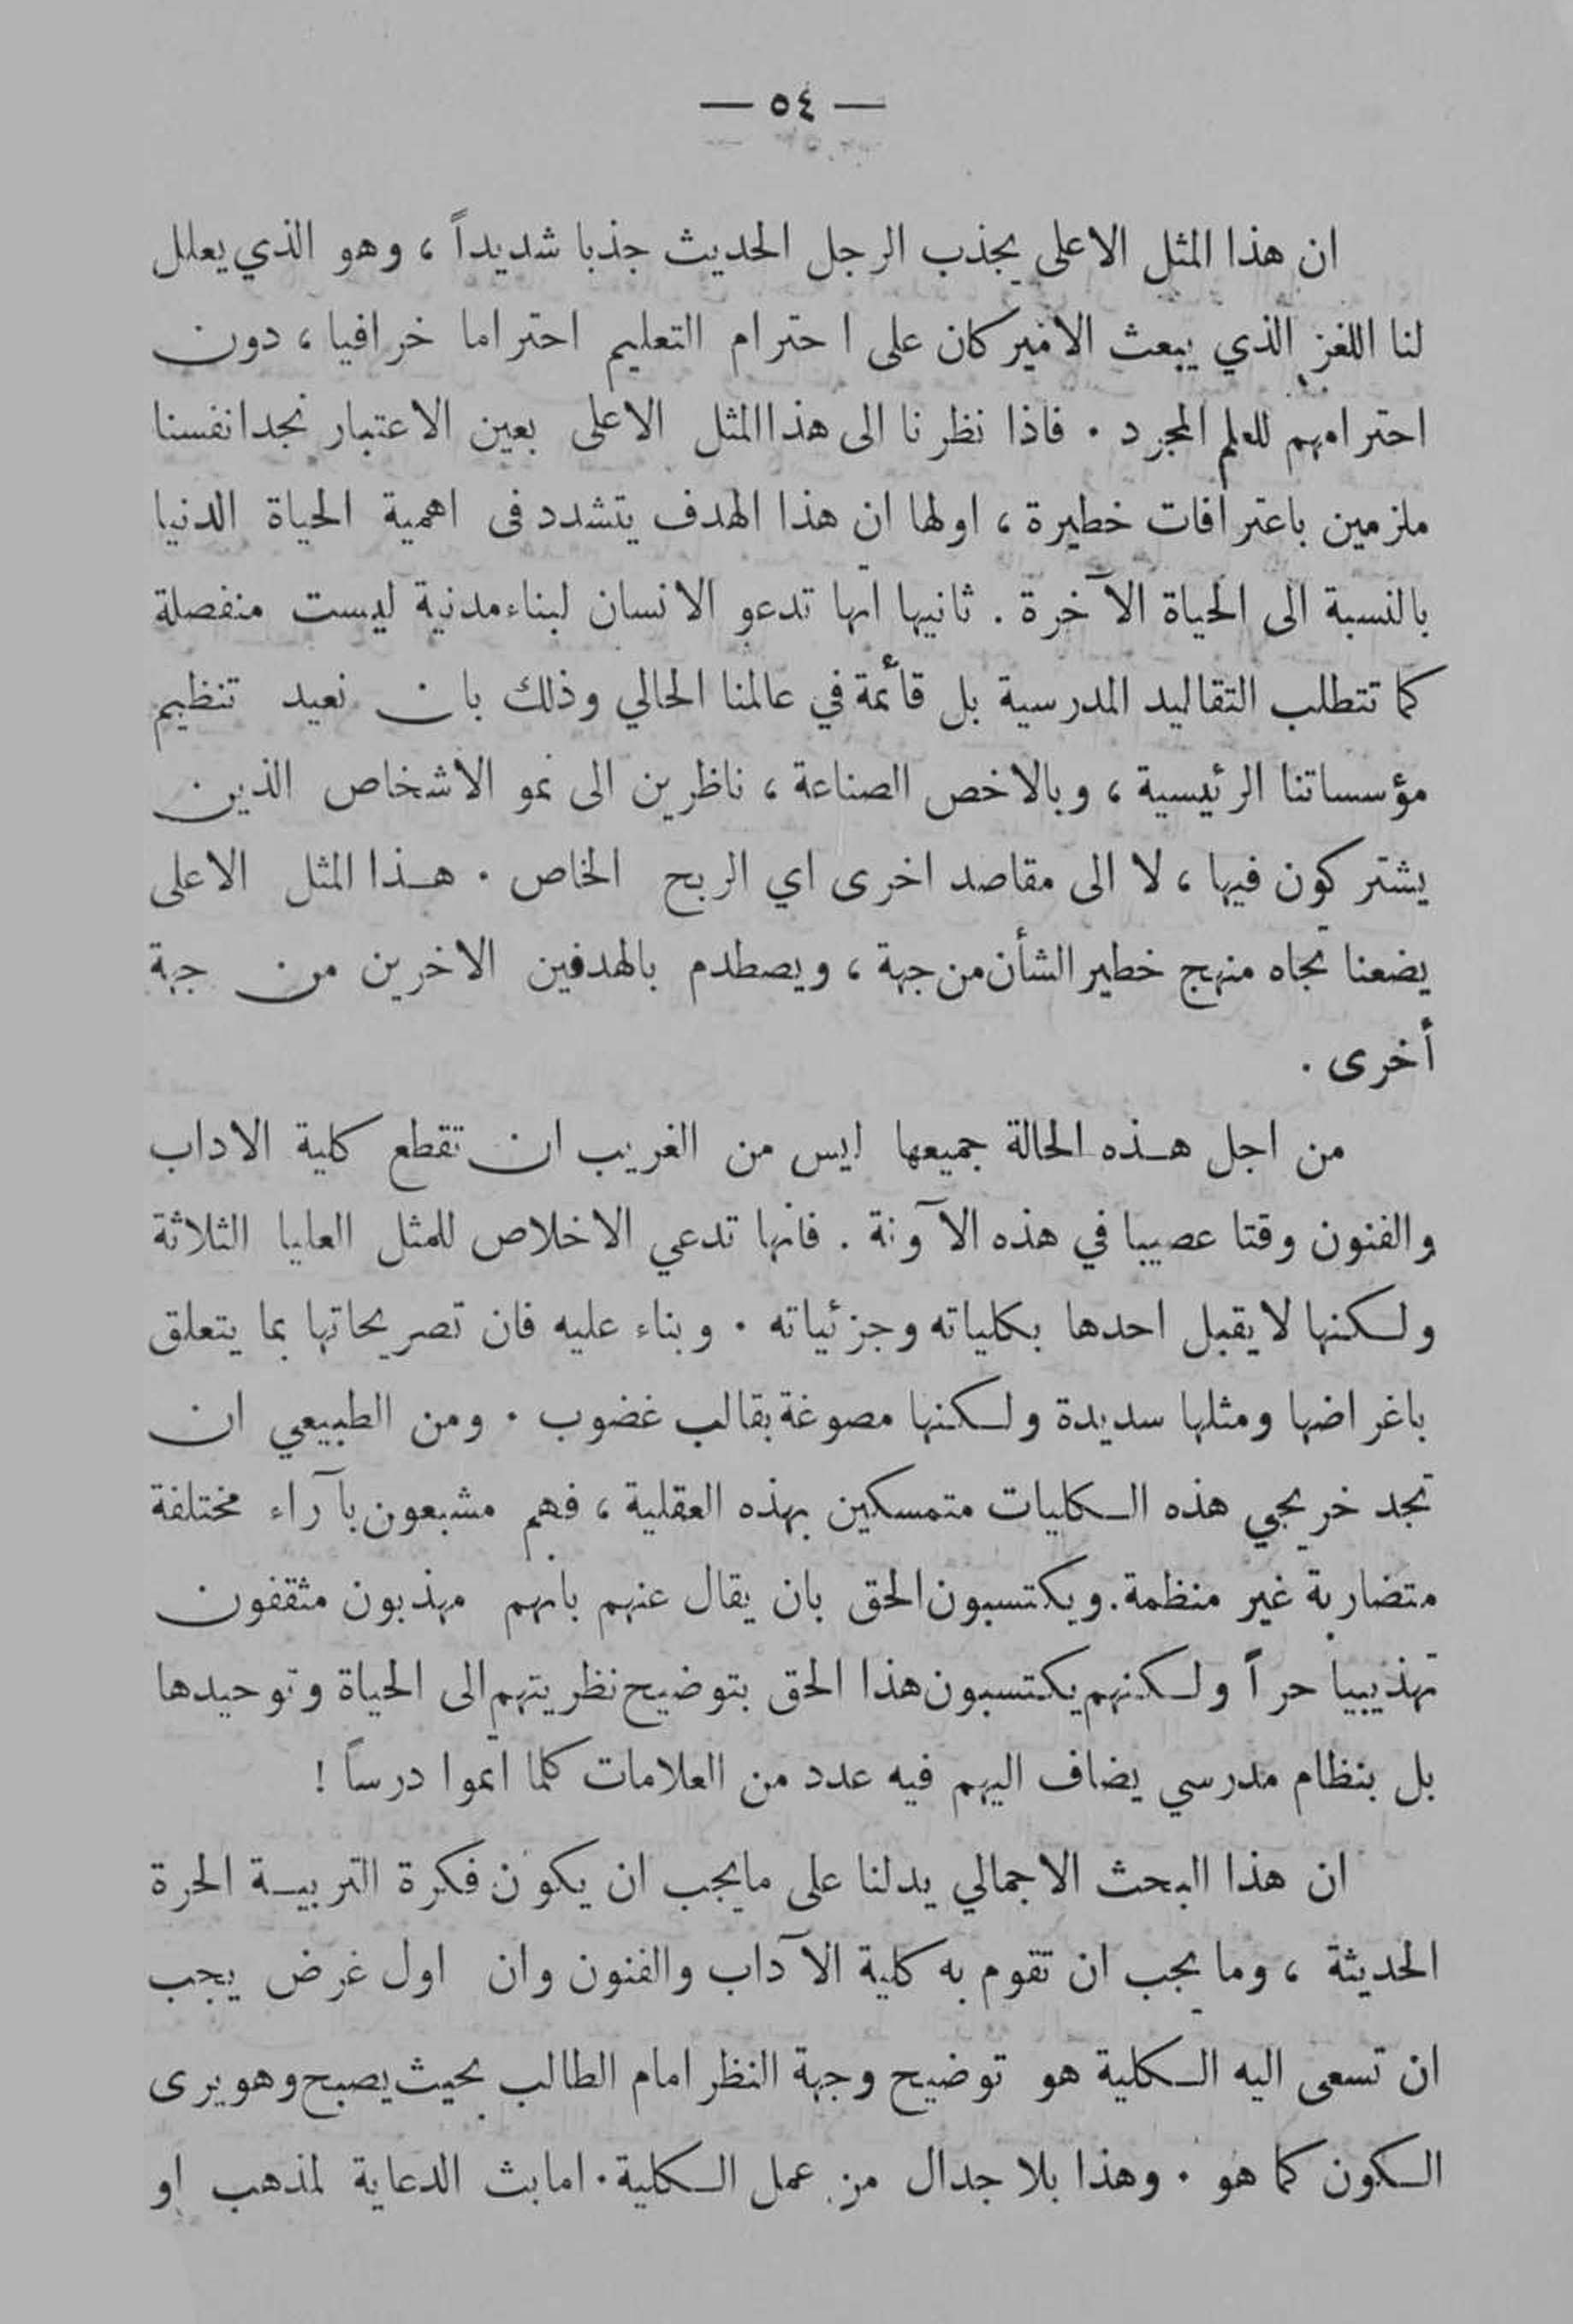 — ٥٤ —
ان هذا المثل الاعلى يجذب الرجل الحديث جذبا شديداً ، وهو الذي يعلل
لنا اللغز الذي يبعث الاميركان على احترام التعليم احتراما خرافيا ، دون
احترامهم للعلم المجرد . فاذا نظرنا الى هذا المثل الاعلى بعين الاعتبار نجد انفسنا
ملزمين باعترافات خطيرة ، اولها ان هذا الهدف يتشدد فى اهمية الحياة الدنيا
بالنسبة الى الحياة الآخرة . ثانيها انها تدعو الانسان لبناء مدنية ليست منفصلة
كما تتطلب التقاليد المدرسية بل قائمة في عالمنا الحالي وذلك بان نعيد تنظيم
مؤسساتنا الرئيسية ، وبالاخص الصناعة ، ناظرين الى نمو الاشخاص الذين
يشتركون فيها ، لا الى مقاصد اخرى اي الربح الخاص . هذا المثل الاعلى
يضعنا تجاه منهج خطير الشأن من جهة ، ويصطدم بالهدفين الاخرين من جهة
أخرى .
من اجل هذه الحالة جميعها ليس من الغريب ان تقطع كلية الاداب
والفنون وقتا عصيبا في هذه الآونة . فانها تدعي الاخلاص للمثل العليا الثلاثة
ولكنها لا يقبل احدها بكلياته وجزئياته . وبناء عليه فان تصريحاتها بما يتعلق
باغراضها ومثلها سديدة ولكنها مصوغة بقالب غضوب . ومن الطبيعي ان
تجد خريجي هذه الكليات متمسكين بهذه العقلية ، فهم مشبعون بآراء مختلفة
متضاربة غير منظمة. ويكتسبون الحق بان يقال عنهم بانهم مهذبون مثقفون
تهذيبيا حراً ولكنهم يكتسبون هذا الحق بتوضيح نظريتهم الى الحياة وتوحيدها
بل بنظام مدرسي يضاف اليهم فيه عدد من العلامات كلما اتموا درساً !
ان هذا البحث الاجمالي يدلنا على ما يجب ان يكون فكرة التربية الحرة
الحديثة ، وما يجب ان تقوم به كلية الآداب والفنون وان اول غرض يجب
ان تسعى اليه الكلية هو توضيح وجهة النظر امام الطالب بحيث يصبح وهو يرى
الكون كما هو . وهذا بلا جدال من عمل الكلية . اما بث الدعاية لمذهب او